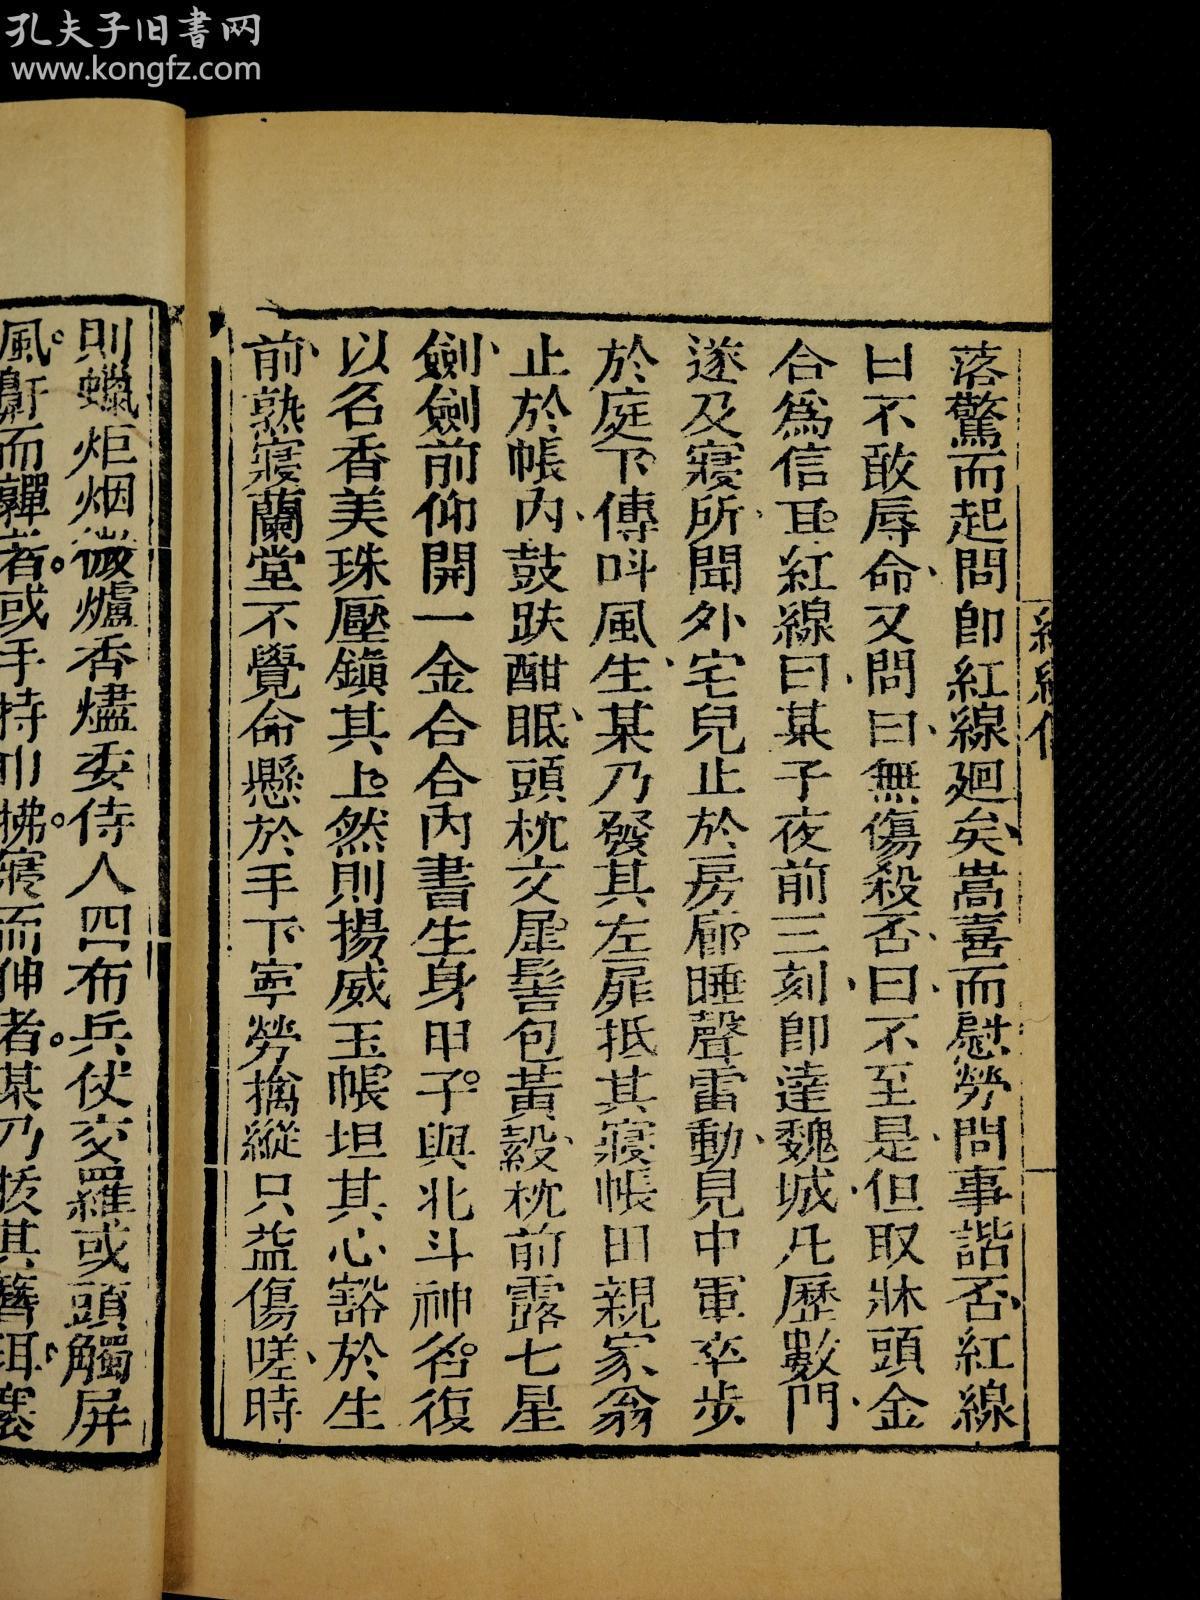 孔夫子旧書网
www.kongfz.com
落驚而起問即紅線廻矣嵩喜而慰勞問事諧否紅線
曰不敢辱命又問曰無傷殺否曰不至是但取牀頭金
合爲信耳紅線曰某子夜前三刻即達魏城凡歷數門
遂及寢所聞外宅兒止於房廊睡聲雷動見中軍卒步
於庭下傳呌風生某乃發其左扉抵其寢帳田親家翁
止於帳內鼓趺酣眠頭枕文犀髻包黃縠枕前露七星
劍劍前仰開一金合合內書生身甲子與北斗神名復
以名香美珠壓鎮其上然則揚威玉帳坦其心豁於生
前熟寢蘭堂不覺命懸於手下寧勞擒縱只益傷嗟時
則蠟炬烟微爐香燼委侍人四布兵仗交羅或頭觸屏
風鼾而嚲者或手持巾拂寢而伸者某乃拔其簪珥